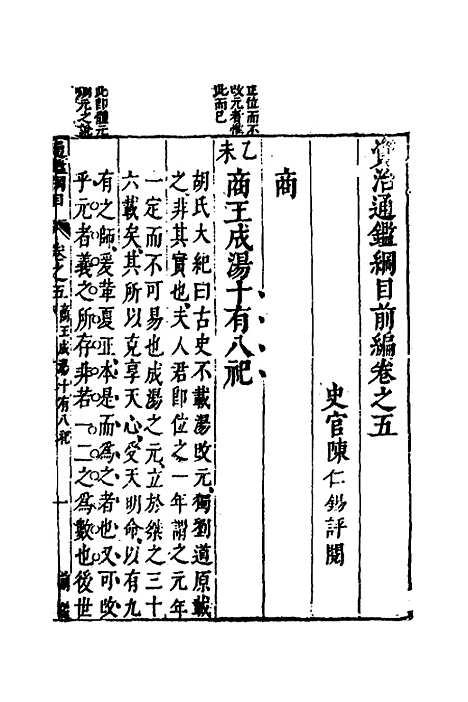 資治通鑑綱目前編卷之五
史官陳仁錫評閱
商
乙未
商王成湯十有八祀
正位而不
改元者惟
此而已
胡氏大紀曰古史不載湯改元獨劉道原載
之非其實也夫人君即位之一年謂之元年
一定而不可易也成湯之元立於桀之三十
六載矣其所以克享天心受天明命以有九
有之師爰革夏正本是而為之者也又可改
乎元者義之所存非若一二之為數也後世
此即體元
之說
卷之五 商王成湯十有八祀 一